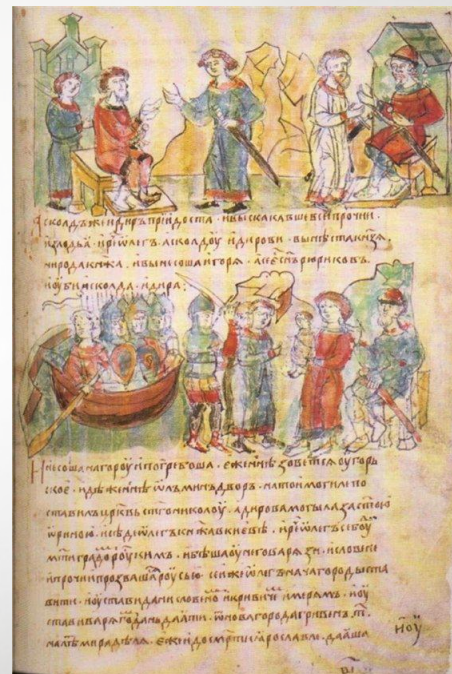 Асколдъ же и диръ придоста · и выскакавше вси прочии ·
из лодьꙗ · и рⷱ҇е ѡлегъ асколдоу и дирови · вы нѣста кн҃ѧзѧ ·
ни рода кн҃жа · и вынесоша игорѧ · а се єсть сн҃ъ рюриковъ ·
и оубиша асколда и дира ;
И несоша на гороу и погребоша · єже нн҃ѣ зоветсѧ оугорь
скоє · идѣже нн҃ѣ ѡльминъ дворъ · на тои могилѣ по
ставилъ цр҃квь ст҃го николоу · а дирова могыла за ст҃ою
ѡриною · и сѣде ѡлегъ кнѧжа в києвѣ · и рⷱ҇е ѡлегъ се боуди
мт҃и градом роускимъ · и бѣша оу него варѧзи · и словене
и прочии прозвашасѧ роусью · се же ѡлегъ нача городы ста
вити · и оустави дани словеном и кривичем и мерѧмъ · и оу
стави варѧгом дань даꙗти · ѿ новагорода гривенъ · т҃ ·
на лѣт мира дѣлѧ · єже и до смрт҃и ꙗрославли · даꙗша
ноу